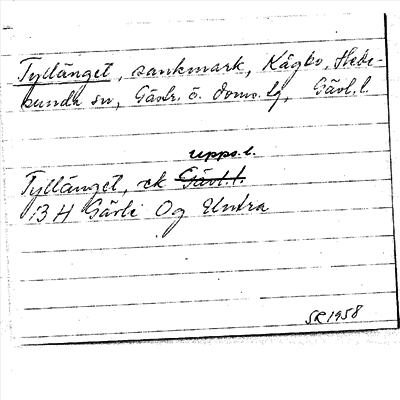 Tyllänget, sankmark, Kågbo, Hede-
sunda sn, Gästr. ö. doms. lg, Gävl. l.
Upps. l.
Tyllänget, ek Gävl. l.
13 H Gävle Og Untra
SR 1958